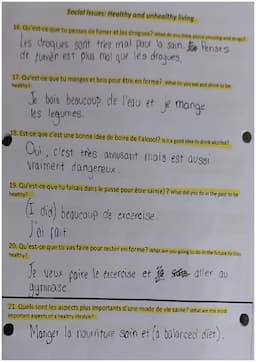 Social Issues: Healthy and unhealthy living
16. Qu'est-ce que tu penses de fumer et les drogues? What do you think about smoking and drugs?
Les drogues sont très mal pour la sain. Je Penses
de fumer est plus mal que les drogues.
17. Qu'est-ce que tu manges et bois pour être en forme? What do you eat and drink to be
healthy?
Je bois beaucoup de l'eau et je mange
les legumes.
18. Est-ce que c'est une bonne idée de boire de l'alcool? Is it a good idea to drink alcohol?
Oui, c'est très amusant mais est aussi
vraiment dangereux.
19. Qu'est-ce que tu faisais dans le passé pour être sain(e)? What did you do in the past to be
healthy?
(I did) beaucoup de excercise.
J'ai fait
20. Qu'est-ce que tu vas faire pour rester en forme? What are you going to do in the future to stay
healthy?
Je veux faire le excercise et aller au
gymnase.
21. Quels sont les aspects plus importants d'une mode de vie saine? What are the most
important aspects of a healthy lifestyle?
Manger la nourriture sain et (a balanced diet).